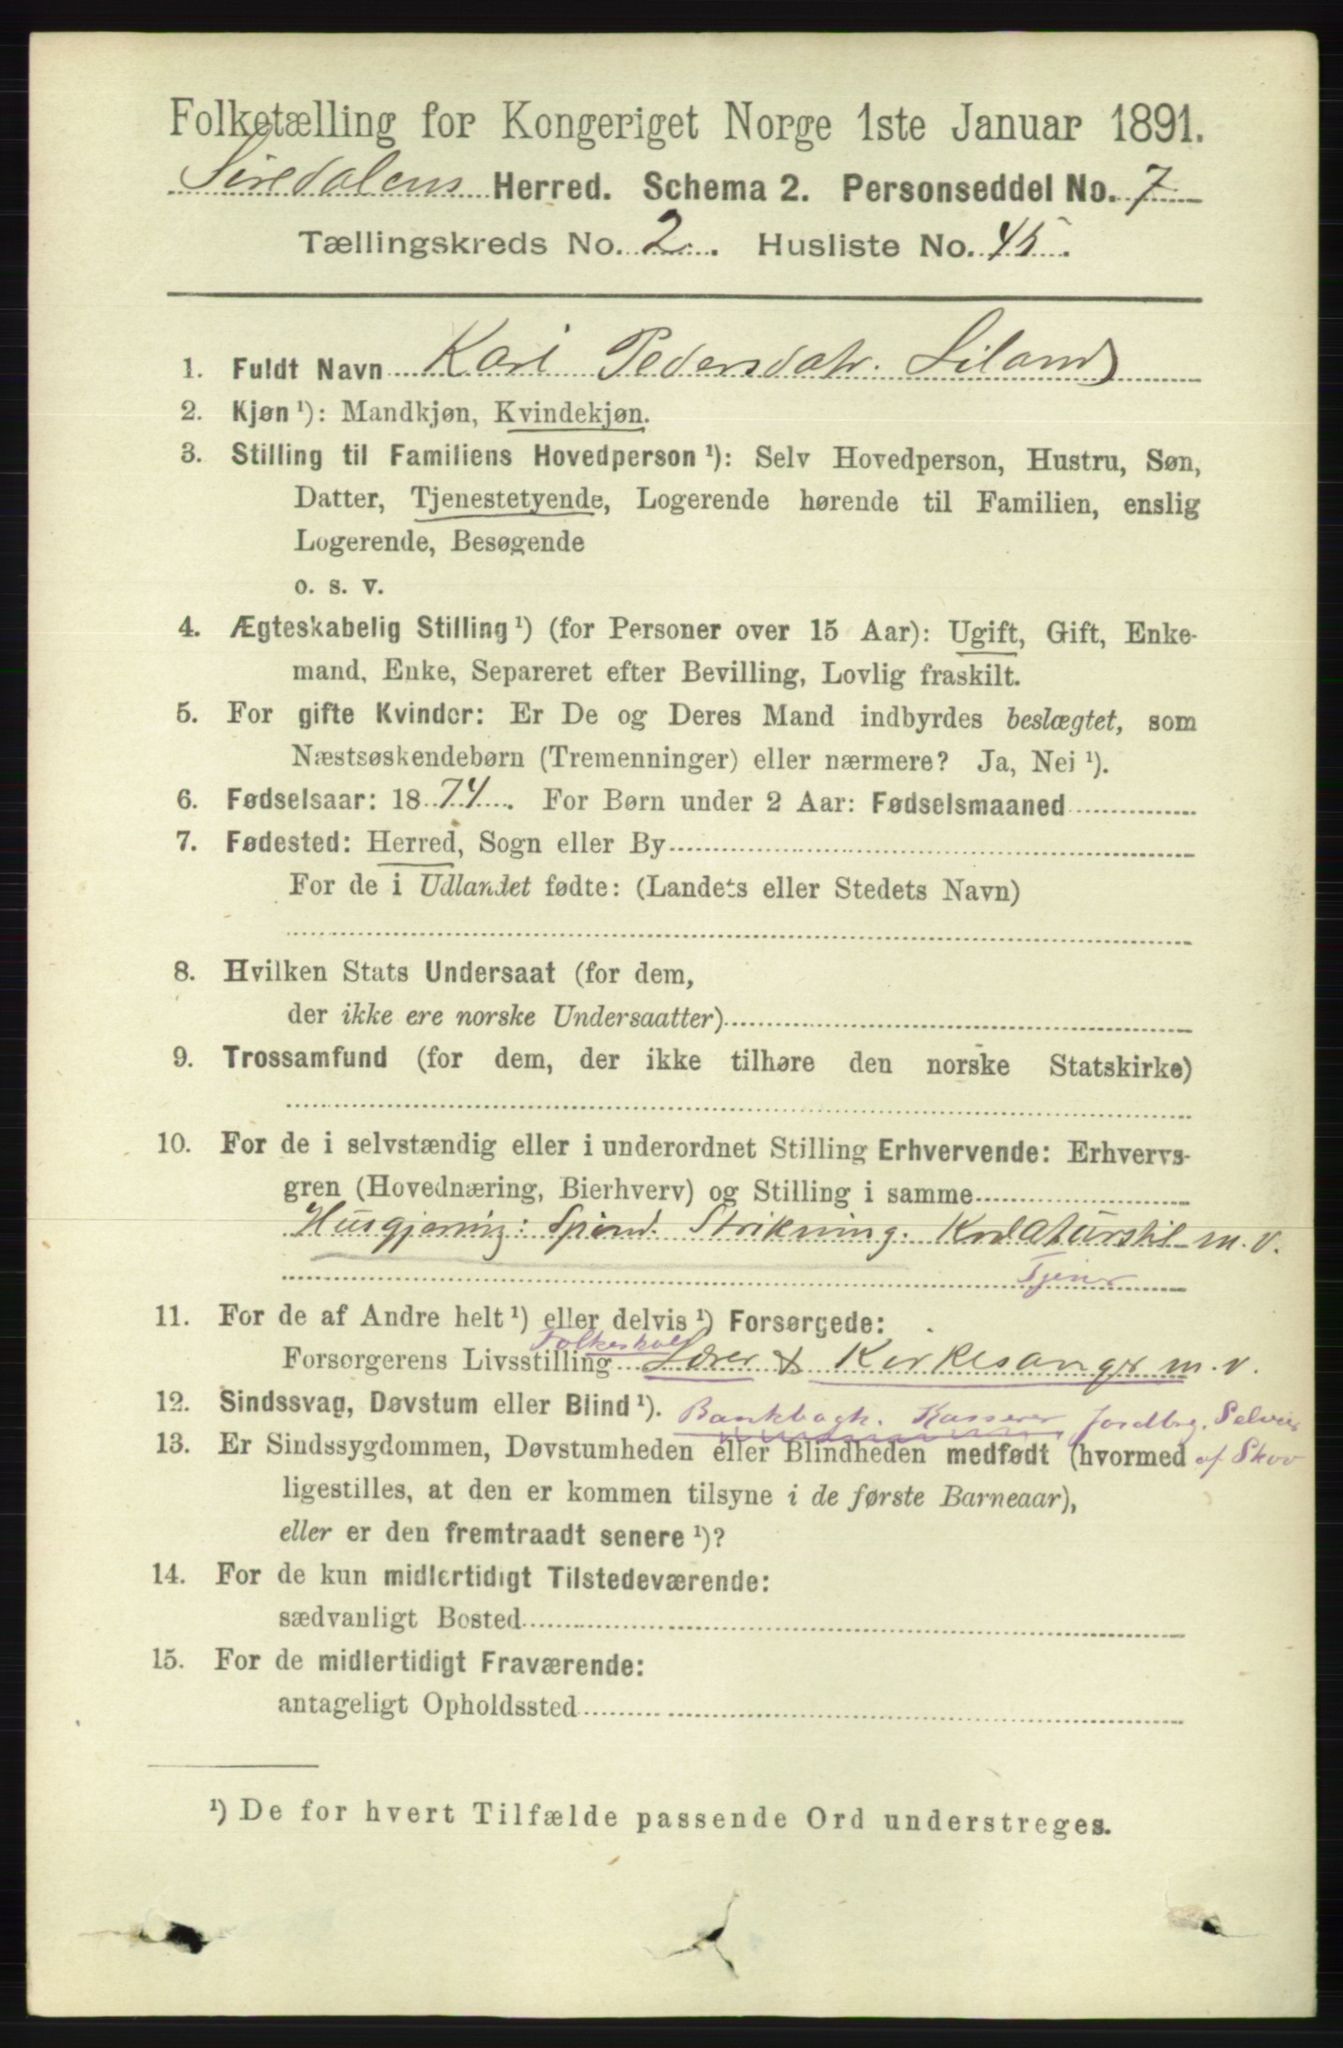 Folketælling for Kongeriget Norge 1ste Januar 1891.
Siredalens Herred. Schema 2. Personseddel No. 7
Tællingskreds No. 2. Husliste No. 45.
1. Fuldt Navn Kari Pedersdatr. Liland
2. Kjøn ¹): Mandkjøn, Kvindekjøn.
3. Stilling til Familiens Hovedperson ¹): Selv Hovedperson, Hustru, Søn,
Datter, Tjenestetyende, Logerende hørende til Familien, enslig
Logerende, Besøgende
o. s. v.
4. Ægteskabelig Stilling ¹) (for Personer over 15 Aar): Ugift, Gift, Enke-
mand, Enke, Separeret efter Bevilling, Lovlig fraskilt.
5. For gifte Kvinder: Er De og Deres Mand indbyrdes beslægtet, som
Næstsøskendebørn (Tremenninger) eller nærmere? Ja, Nei ¹).
6. Fødselsaar: 1874. For Børn under 2 Aar: Fødselsmaaned
7. Fødested: Herred, Sogn eller By
For de i Udlandet fødte: (Landets eller Stedets Navn)
8. Hvilken Stats Undersaat (for dem,
der ikke ere norske Undersaatter)
9. Trossamfund (for dem, der ikke tilhøre den norske Statskirke)
10. For de i selvstændig eller i underordnet Stilling Erhvervende: Erhvervs-
gren (Hovednæring, Bierhverv) og Stilling i samme
Husgjerning: Spind. Strikning. Kreaturstel m. v.
Tjener
11. For de af Andre helt ¹) eller delvis ¹) Forsørgede:
Folkeskole
Forsørgerens Livsstilling Lærer & Kirkesanger m. v.
12. Sindssvag, Døvstum eller Blind ¹). Bankbogh. Kasserer Jordbrg. Selveier
13. Er Sindssygdommen, Døvstumheden eller Blindheden medfødt (hvormed af Skov
ligestilles, at den er kommen tilsyne i de første Barneaar),
eller er den fremtraadt senere ¹)?
14. For de kun midlertidigt Tilstedeværende:
sædvanligt Bosted
15. For de midlertidigt Fraværende:
antageligt Opholdssted
¹) De for hvert Tilfælde passende Ord understreges.